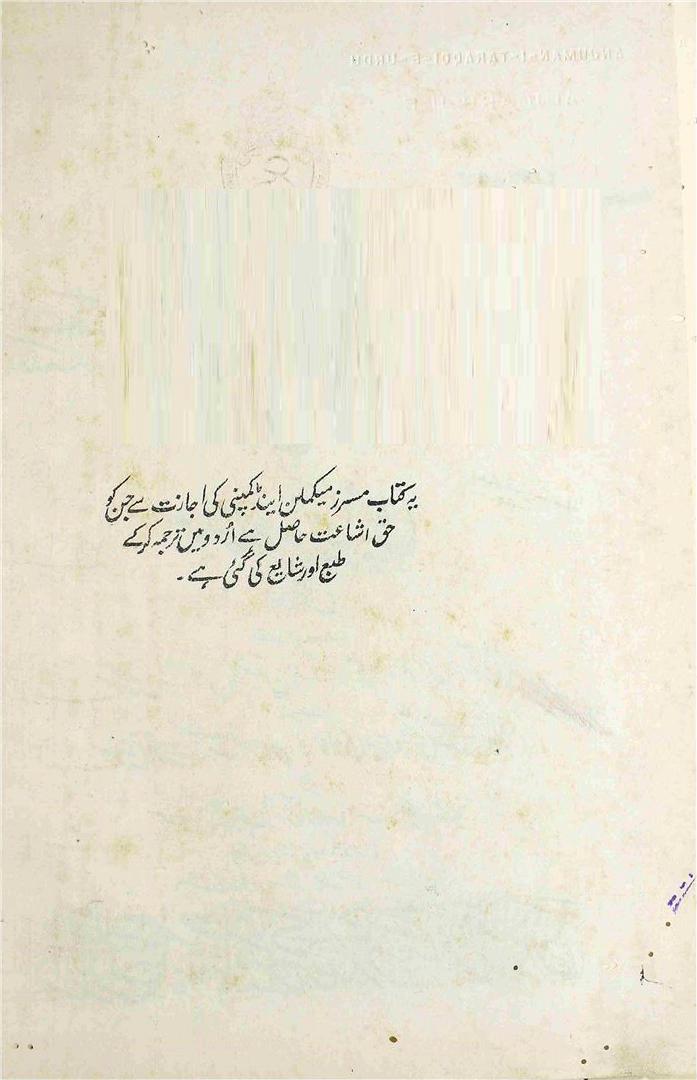 یہ کتاب مسرز میکملن اینڈ کمپنی کی اجازت سے جن کو
حق اشاعت حاصل ہے اُردو میں ترجمہ کرکے
طبع اور شایع کی گئی ہے ۔